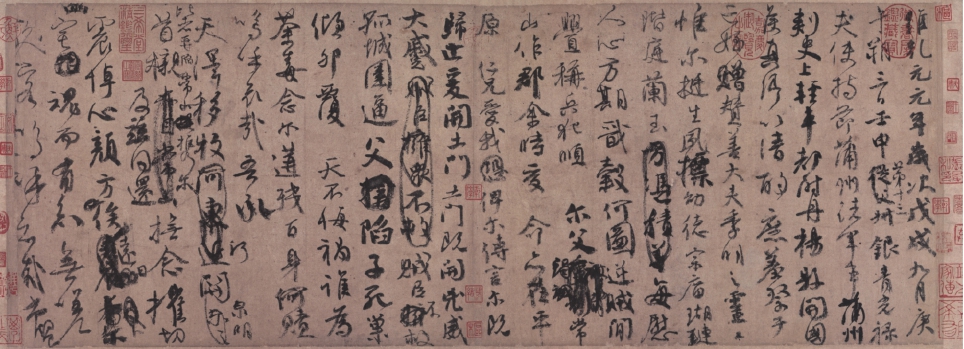 維乾元元年歲次戊戌九月庚
午朔三日壬申第十三叔銀青光祿
夫使持節蒲州諸軍事蒲州
刺史上輕車都尉丹楊縣開國
侯真卿以清酌庶羞祭于
亡姪贈贊善大夫季明之靈曰
惟爾挺生夙標幼德宗廟瑚璉
階庭蘭玉方憑積善每慰
人心方期戩穀何圖逆賊間
釁稱兵犯順爾父竭誠常
山作郡余時受命亦在平
原仁兄愛我俾爾傳言爾既
歸止爰開土門土門既開凶威
大蹙賊臣擁眾不救賊臣不救
孤城圍逼父陷子死巢
傾卵覆天不悔禍誰為
荼毒念爾遘殘百身何贖
嗚呼哀哉吾承
天澤移牧河東近河關泉明
比者再陷常山攜爾
首櫬及茲同還撫念摧切
震悼心顏方俟遠日
卜爾幽宅魂而有知無嗟
久客嗚呼哀哉尚饗